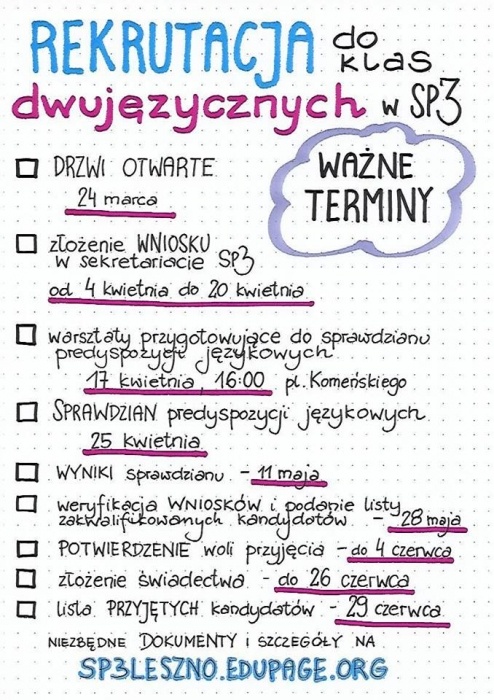 REKRUTACJA do klas
dwujęzycznych w SP3
WAŻNE
TERMINY
DRZWI OTWARTE
24 marca
złożenie WNIOSKU
w sekretariacie SP3
od 4 kwietnia do 20 kwietnia
warsztaty przygotowujące do sprawdzianu
predyspozycji językowych
17 kwietnia, 16:00 pl. Komeńskiego
SPRAWDZIAN predyspozycji językowych
25 kwietnia
WYNIKI sprawdzianu - 11 maja
weryfikacja WNIOSKÓW i podanie listy
zakwalifikowanych kandydatów - 28 maja
POTWIERDZENIE woli przyjęcia - do 4 czerwca
złożenie świadectwa - do 26 czerwca
lista PRZYJĘTYCH kandydatów - 29 czerwca
NIEZBĘDNE DOKUMENTY I SZCZEGÓŁY NA
SP3LESZNO.EDUPAGE.ORG